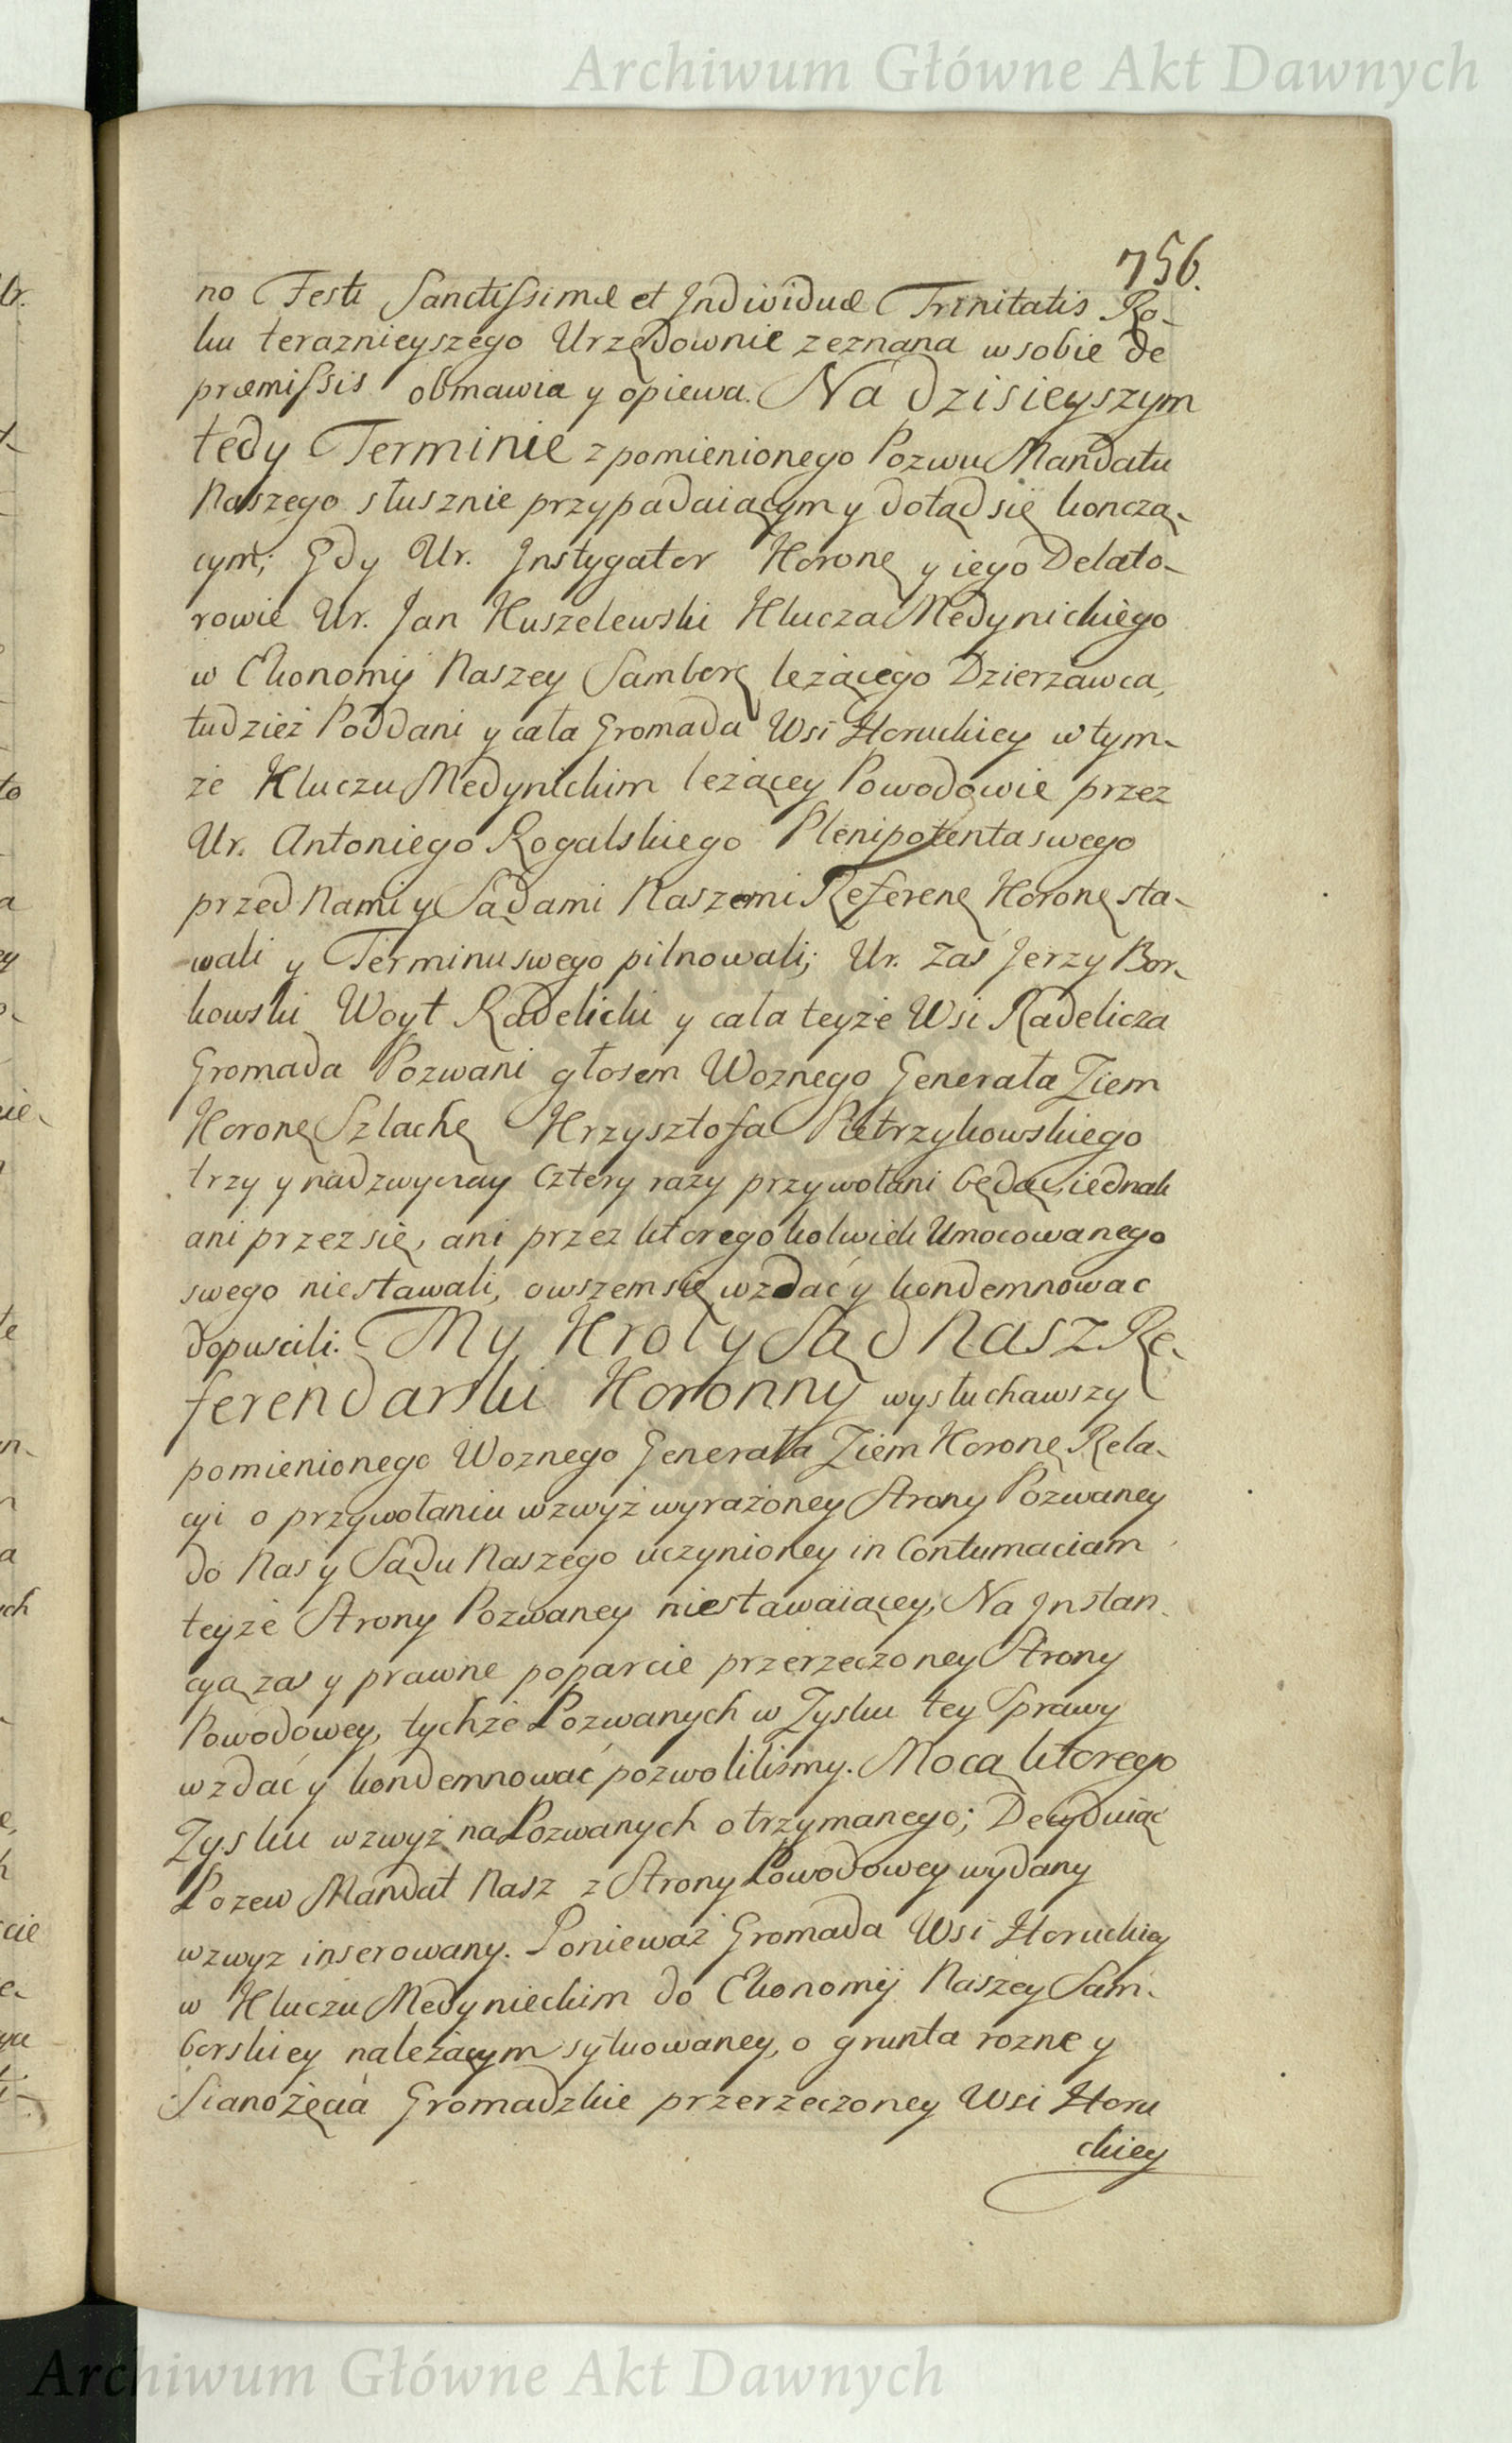 Archiwum Główne Akt Dawnych
756.
no Festi Sanctissimæ et Individuæ Trinitatis Ro-
ku teraznieyszego Urzędownie zeznana w sobie de
præmissis obmawia y opiewa. Na dzisieyszym
tedy Terminie z pomienionego Pozwu Mandatu
Naszego słusznie przypadaiącym y dotąd się konczą-
cym; Gdy Ur. Instygator Koronę y iego Delato-
rowie Ur. Jan Kuszelewski Klucza Medynickiego
w Ekonomij Naszey Samborę leżącego Dzierzawca,
tudzież Poddani y cała Gromada Wsi Horuckiey w tym-
że Kluczu Medynickim leżącey Powodowie przez
Ur. Antoniego Rogalskiego Plenipotenta swego
przed Nami y Sądami Naszemi Referenę Koronę sta-
wali y Terminu swego pilnowali; Ur. Zaś Jerzy Bor-
kowski Woyt Radelicki y cała teyże Wsi Radelicza
Gromada Pozwani głosem Woznego Generała Ziem
Koronę Szlachę Krzysztofa Pietrzykowskiego
trzy y nadzwyczay cztery razy przywołani będąc, iednak
ani przez się, ani przez ktoregokolwiek Umocowanego
swego niestawali, owszem się wzdać y kondemnowac
dopuscili. My Krol y Sąd Nasz Re-
ferendarski Koronny wysłuchawszy
pomienionego Woznego Generała Ziem Koronę Rela-
cyi o przywołaniu wzwyż wyrażoney Strony Pozwaney
do Nas y Sądu Naszego uczynioney in Contumaciam
teyże Strony Pozwaney niestawaiącey, Na Instan-
cyą zas y prawne poparcie przerzeczoney Strony
Powodowey, tychże Pozwanych w Zysku tey Sprawy
wzdać y kondemnować pozwolilismy. Mocą ktorego
Zysku wzwyż na Pozwanych otrzymanego; Decyduiąc
Pozew Mandat Nasz z Strony Powodowey wydany
wzwyz inserowany. Ponieważ Gromada Wsi Horuckiey
w Kluczu Medynieckim do Ekonomij Naszey Sam-
borskiey należącym sytuowaney, o grunta rozne y
Sianożęcia Gromadzkie przerzeczoney Wsi Horu
ckiey
Archiwum Główne Akt Dawnych